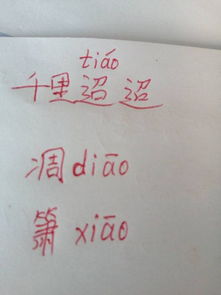 tiáo
千里迢迢
凋 diāo
箫 xiāo